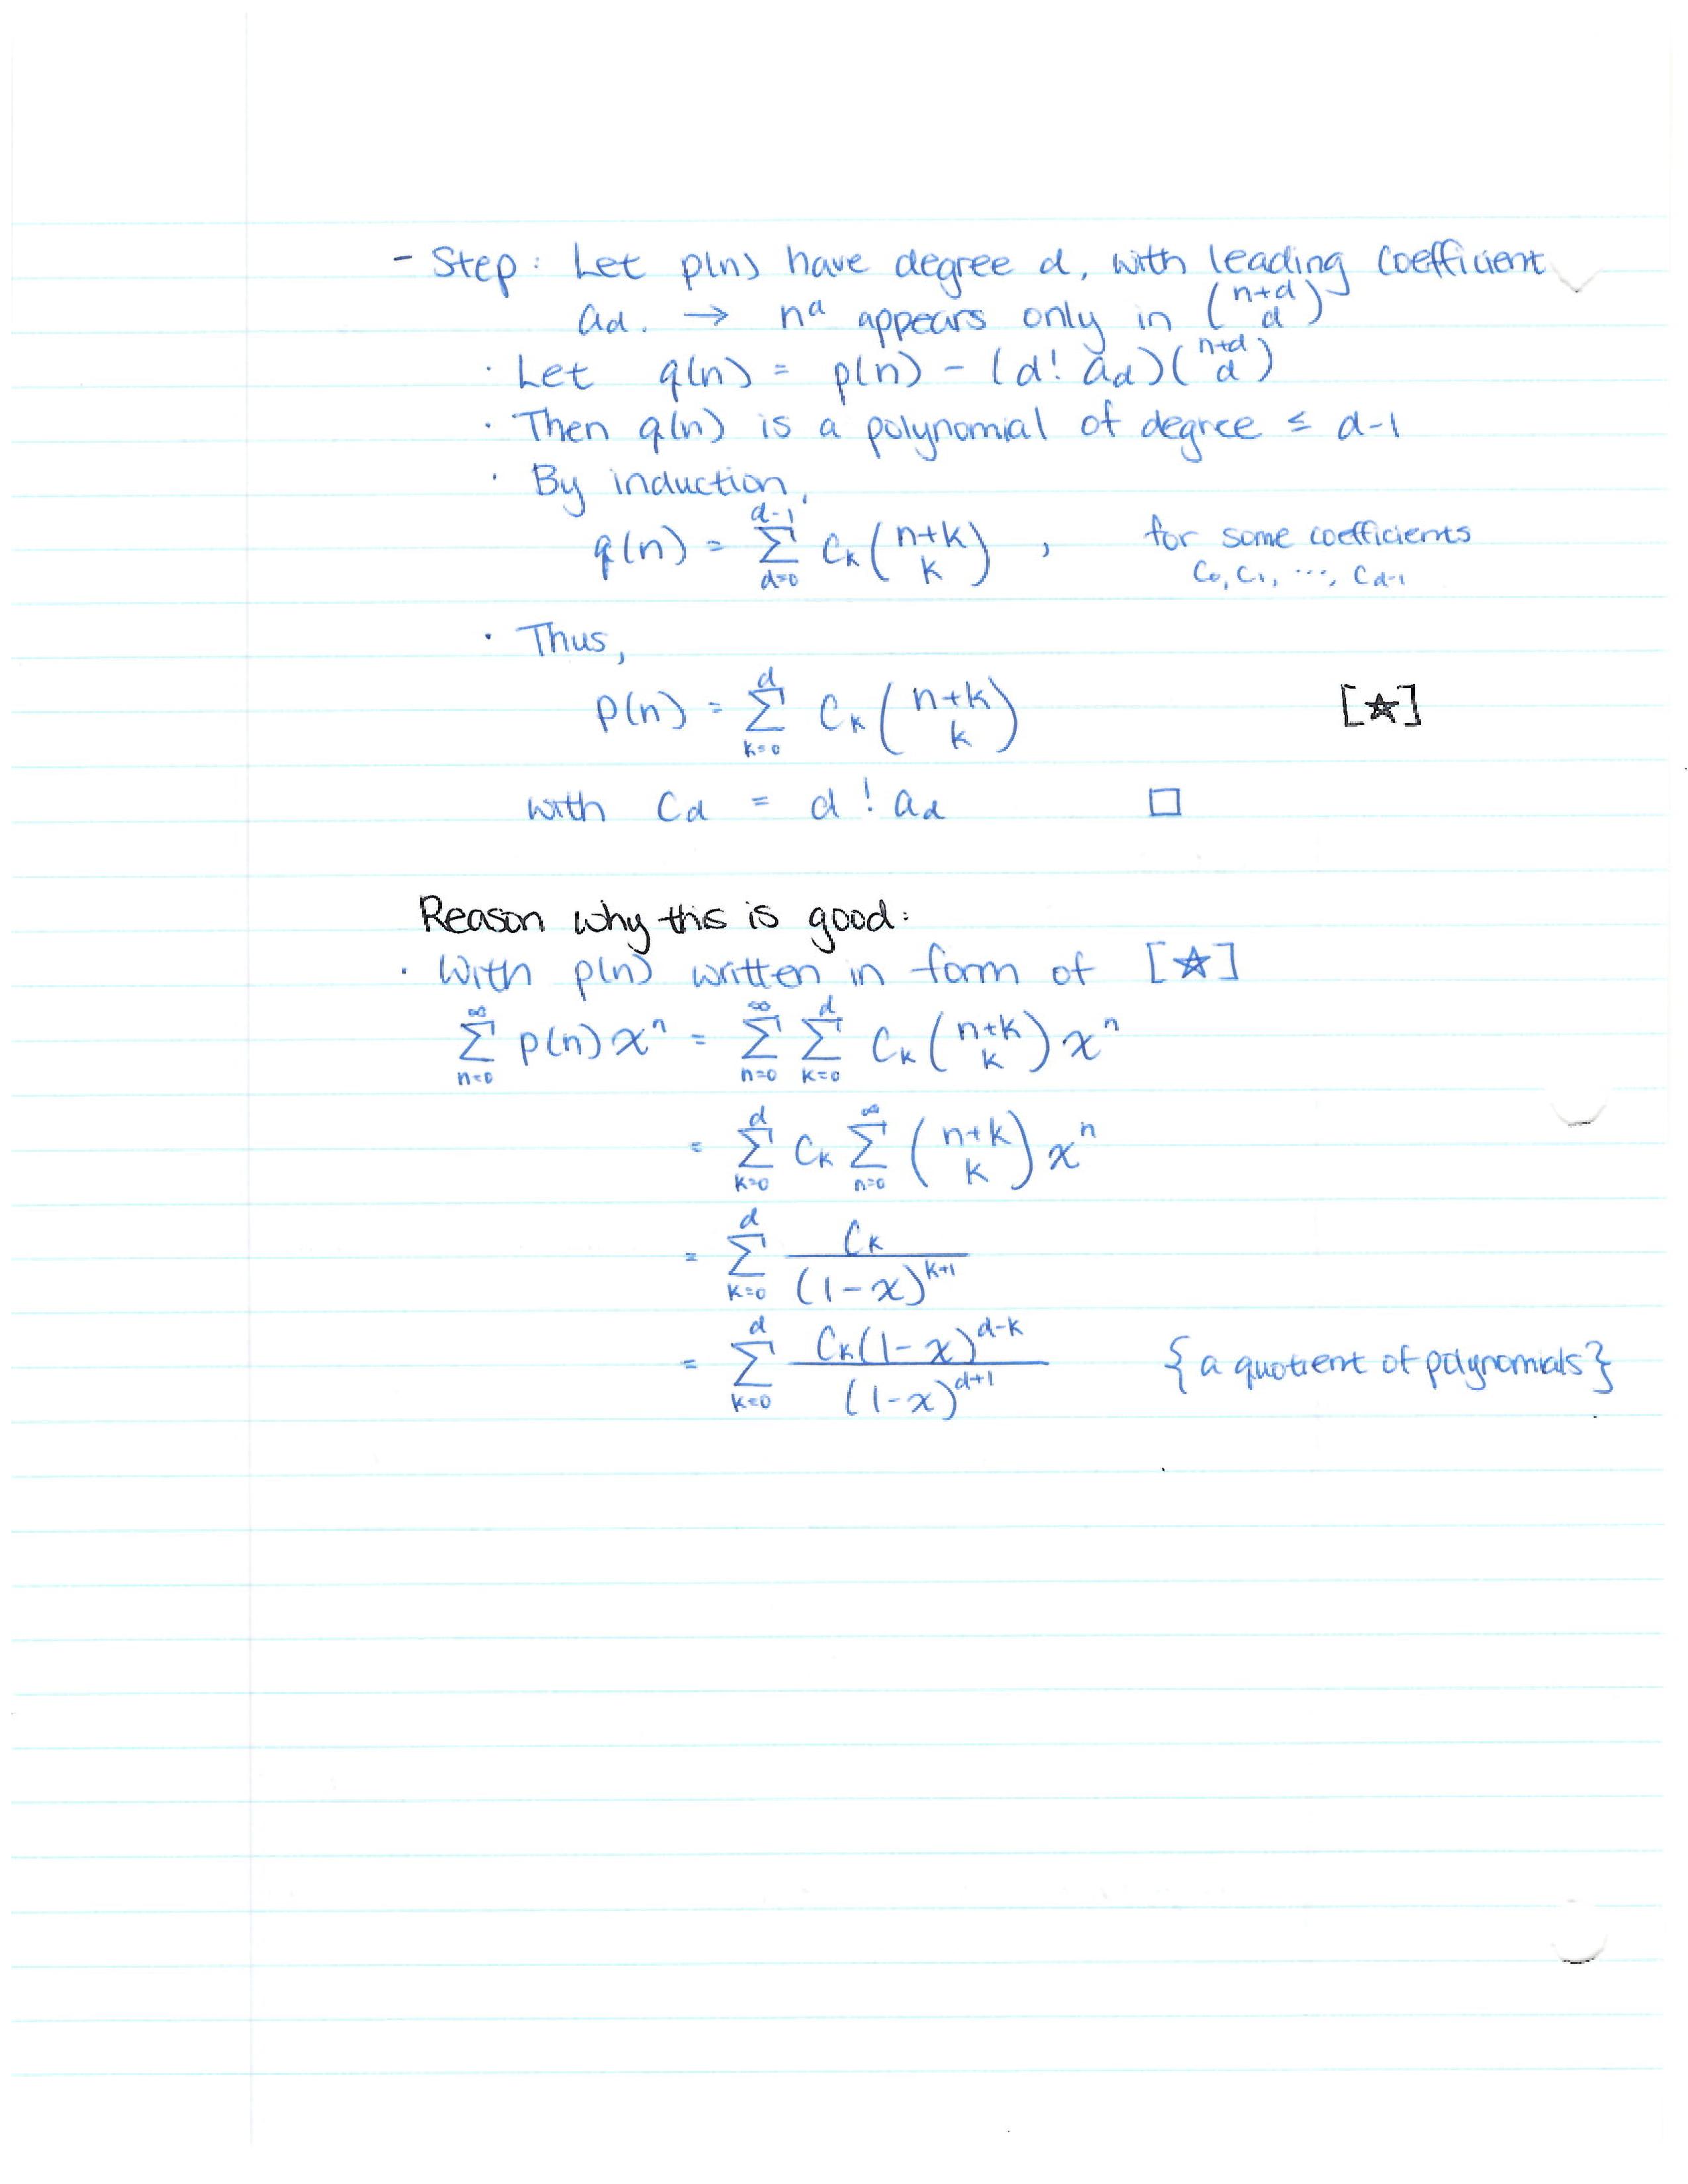 - Step: Let p(n) have degree d, with leading coefficient
a_d. → n^d appears only in (n+d choose d)
· Let q(n) = p(n) - (d! a_d)(n+d choose d)
· Then q(n) is a polynomial of degree ≤ d-1
· By induction,
q(n) = ∑_{d=0}^{d-1} C_k (n+k choose k), for some coefficients
C_0, C_1, ..., C_{d-1}
· Thus,
p(n) = ∑_{k=0}^{d} C_k (n+k choose k) [☆]
with C_d = d! a_d □
Reason why this is good:
· With p(n) written in form of [☆]
∑_{n=0}^{∞} p(n) x^n = ∑_{n=0}^{∞} ∑_{k=0}^{d} C_k (n+k choose k) x^n
= ∑_{k=0}^{d} C_k ∑_{n=0}^{∞} (n+k choose k) x^n
= ∑_{k=0}^{d} C_k / (1-x)^{k+1}
= ∑_{k=0}^{d} C_k(1-x)^{d-k} / (1-x)^{d+1} {a quotient of polynomials}